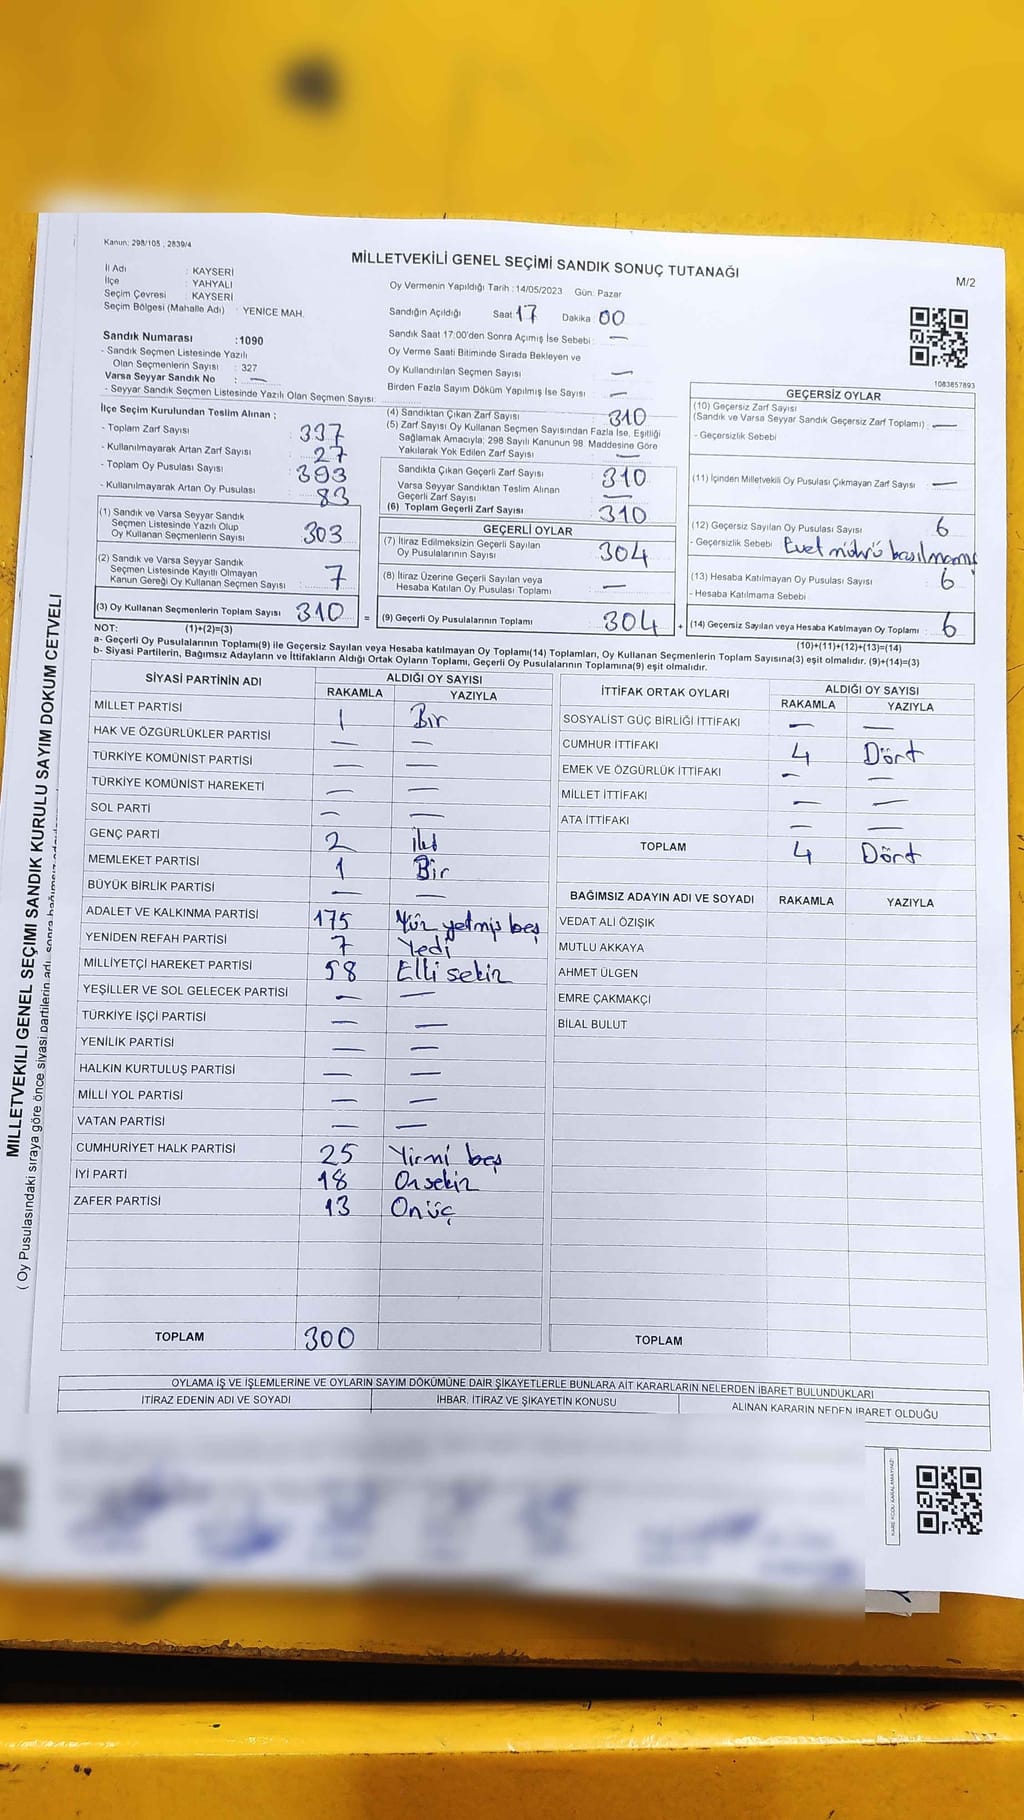 Kanun: 298/105 , 2839/4
MİLLETVEKİLİ GENEL SEÇİMİ SANDIK SONUÇ TUTANAĞI
M/2
İl Adı : KAYSERİ
İlçe : YAHYALI
Seçim Çevresi : KAYSERİ
Seçim Bölgesi (Mahalle Adı) : YENİCE MAH.
Oy Vermenin Yapıldığı Tarih : 14/05/2023 Gün: Pazar
Sandığın Açıldığı Saat 17 Dakika 00
Sandık Saat 17:00'den Sonra Açımış İse Sebebi : —
Oy Verme Saati Bitiminde Sırada Bekleyen ve
Oy Kullandırılan Seçmen Sayısı : —
Birden Fazla Sayım Döküm Yapılmış İse Sayısı : —
1083857893
Sandık Numarası :1090
- Sandık Seçmen Listesinde Yazılı
Olan Seçmenlerin Sayısı : 327
Varsa Seyyar Sandık No : —
- Seyyar Sandık Seçmen Listesinde Yazılı Olan Seçmen Sayısı:
İlçe Seçim Kurulundan Teslim Alınan ;
- Toplam Zarf Sayısı : 337
- Kullanılmayarak Artan Zarf Sayısı : 27
- Toplam Oy Pusulası Sayısı : 393
- Kullanılmayarak Artan Oy Pusulası : 83
(1) Sandık ve Varsa Seyyar Sandık
Seçmen Listesinde Yazılı Olup
Oy Kullanan Seçmenlerin Sayısı : 303
(2) Sandık ve Varsa Seyyar Sandık
Seçmen Listesinde Kayıtlı Olmayan
Kanun Gereği Oy Kullanan Seçmen Sayısı : 7
(3) Oy Kullanan Seçmenlerin Toplam Sayısı : 310
(4) Sandıktan Çıkan Zarf Sayısı : 310
(5) Zarf Sayısı Oy Kullanan Seçmen Sayısından Fazla İse, Eşitliği
Sağlamak Amacıyla; 298 Sayılı Kanunun 98. Maddesine Göre
Yakılarak Yok Edilen Zarf Sayısı : —
Sandıkta Çıkan Geçerli Zarf Sayısı : 310
Varsa Seyyar Sandıktan Teslim Alınan
Geçerli Zarf Sayısı : —
(6) Toplam Geçerli Zarf Sayısı : 310
GEÇERLİ OYLAR
(7) İtiraz Edilmeksizin Geçerli Sayılan
Oy Pusulalarının Sayısı : 304
(8) İtiraz Üzerine Geçerli Sayılan veya
Hesaba Katılan Oy Pusulası Toplamı : —
= (9) Geçerli Oy Pusulalarının Toplamı : 304 +
GEÇERSİZ OYLAR
(10) Geçersiz Zarf Sayısı
(Sandık ve Varsa Seyyar Sandık Geçersiz Zarf Toplamı) : —
- Geçersizlik Sebebi
(11) İçinden Milletvekili Oy Pusulası Çıkmayan Zarf Sayısı : —
(12) Geçersiz Sayılan Oy Pusulası Sayısı : 6
- Geçersizlik Sebebi Evet mührü basılmamış
(13) Hesaba Katılmayan Oy Pusulası Sayısı : 6
- Hesaba Katılmama Sebebi
(14) Geçersiz Sayılan veya Hesaba Katılmayan Oy Toplamı : 6
NOT: (1)+(2)=(3)
(10)+(11)+(12)+(13)=(14)
a- Geçerli Oy Pusulalarının Toplamı(9) ile Geçersiz Sayılan veya Hesaba katılmayan Oy Toplamı(14) Toplamları, Oy Kullanan Seçmenlerin Toplam Sayısına(3) eşit olmalıdır. (9)+(14)=(3)
b- Siyasi Partilerin, Bağımsız Adayların ve İttifakların Aldığı Ortak Oyların Toplamı, Geçerli Oy Pusulalarının Toplamına(9) eşit olmalıdır.
SİYASİ PARTİNİN ADI ALDIĞI OY SAYISI
RAKAMLA YAZIYLA
MİLLET PARTİSİ 1 Bir
HAK VE ÖZGÜRLÜKLER PARTİSİ — —
TÜRKİYE KOMÜNİST PARTİSİ — —
TÜRKİYE KOMÜNİST HAREKETİ — —
SOL PARTİ — —
GENÇ PARTİ 2 İki
MEMLEKET PARTİSİ 1 Bir
BÜYÜK BİRLİK PARTİSİ — —
ADALET VE KALKINMA PARTİSİ 175 Yüz yetmiş beş
YENİDEN REFAH PARTİSİ 7 Yedi
MİLLİYETÇİ HAREKET PARTİSİ 58 Elli sekiz
YEŞİLLER VE SOL GELECEK PARTİSİ — —
TÜRKİYE İŞÇİ PARTİSİ — —
YENİLİK PARTİSİ — —
HALKIN KURTULUŞ PARTİSİ — —
MİLLİ YOL PARTİSİ — —
VATAN PARTİSİ — —
CUMHURİYET HALK PARTİSİ 25 Yirmi beş
İYİ PARTİ 18 On sekiz
ZAFER PARTİSİ 13 On üç
TOPLAM 300
İTTİFAK ORTAK OYLARI ALDIĞI OY SAYISI
RAKAMLA YAZIYLA
SOSYALİST GÜÇ BİRLİĞİ İTTİFAKI — —
CUMHUR İTTİFAKI 4 Dört
EMEK VE ÖZGÜRLÜK İTTİFAKI — —
MİLLET İTTİFAKI — —
ATA İTTİFAKI — —
TOPLAM 4 Dört
BAĞIMSIZ ADAYIN ADI VE SOYADI RAKAMLA YAZIYLA
VEDAT ALİ ÖZIŞIK
MUTLU AKKAYA
AHMET ÜLGEN
EMRE ÇAKMAKÇİ
BİLAL BULUT
TOPLAM
OYLAMA İŞ VE İŞLEMLERİNE VE OYLARIN SAYIM DÖKÜMÜNE DAİR ŞİKAYETLERLE BUNLARA AİT KARARLARIN NELERDEN İBARET BULUNDUKLARI
İTİRAZ EDENİN ADI VE SOYADI İHBAR, İTİRAZ VE ŞİKAYETİN KONUSU ALINAN KARARIN NEDEN İBARET OLDUĞU
KARE KODU KARALAMAYINIZ!
MİLLETVEKİLİ GENEL SEÇİMİ SANDIK KURULU SAYIM DÖKÜM CETVELİ
( Oy Pusulasındaki sıraya göre önce siyasi partilerin adı, sonra bağımsız